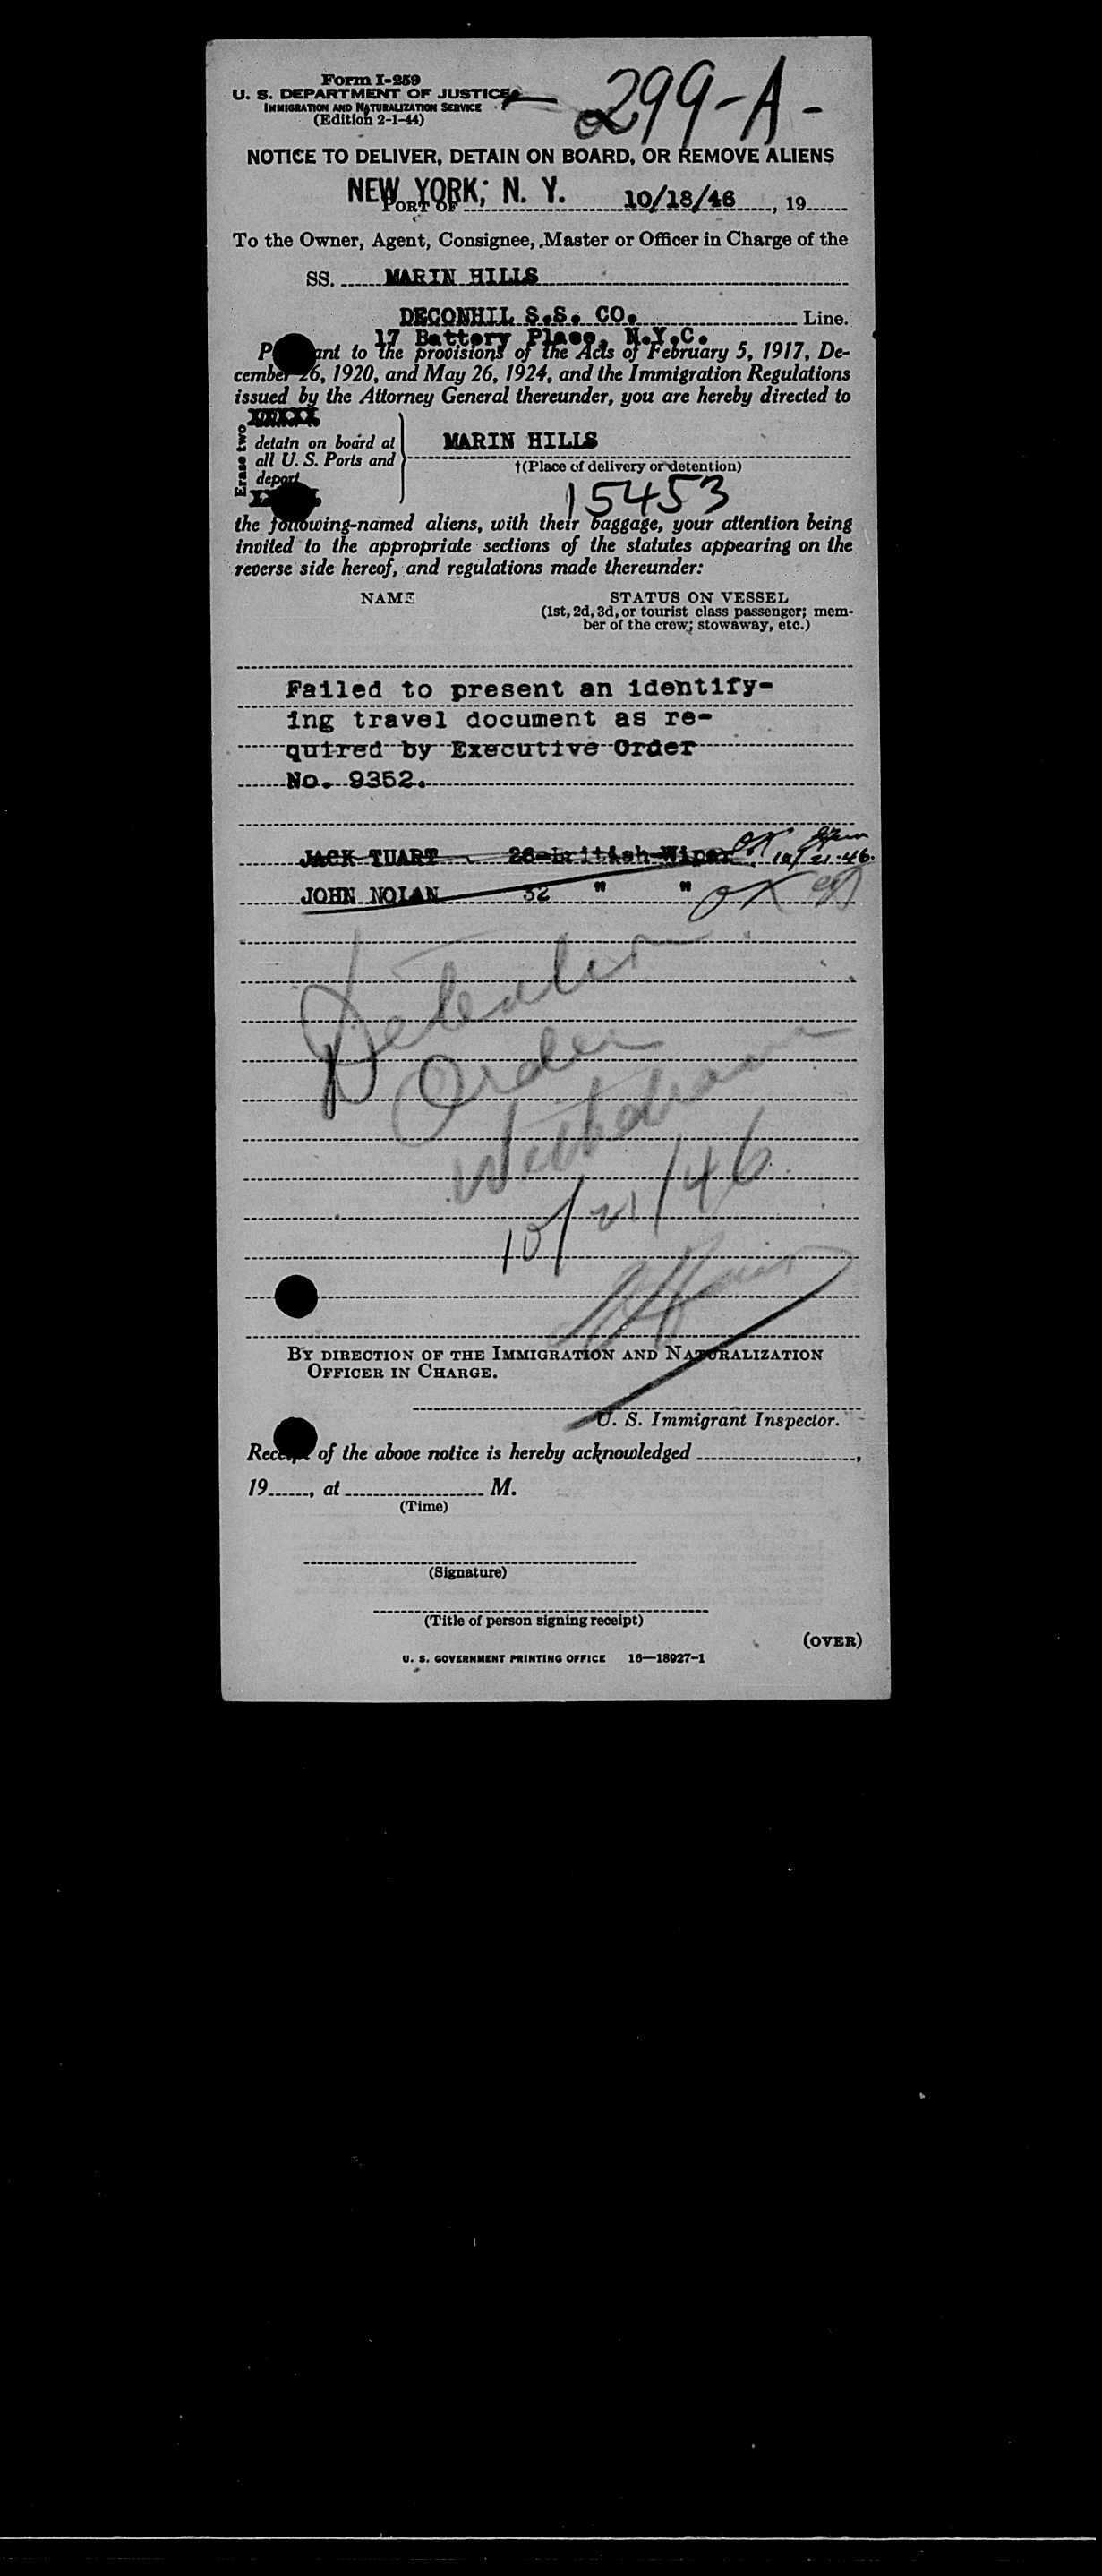 Form I-259
U. S. DEPARTMENT OF JUSTICE
IMMIGRATION AND NATURALIZATION SERVICE
(Edition 2-1-44)
299-A-
NOTICE TO DELIVER, DETAIN ON BOARD, OR REMOVE ALIENS
NEW YORK, N. Y.
PORT OF 10/18/46, 19
To the Owner, Agent, Consignee, Master or Officer in Charge of the
SS. MARIN HILLS
DECONHIL S.S. CO. Line.
17 Battery Place, N.Y.C.
P ant to the provisions of the Acts of February 5, 1917, De-
cember 26, 1920, and May 26, 1924, and the Immigration Regulations
issued by the Attorney General thereunder, you are hereby directed to
Erase two
detain on board at
all U. S. Ports and
deport
MARIN HILLS
†(Place of delivery or detention)
15453
the following-named aliens, with their baggage, your attention being
invited to the appropriate sections of the statutes appearing on the
reverse side hereof, and regulations made thereunder:
NAME STATUS ON VESSEL
(1st, 2d, 3d, or tourist class passenger; mem-
ber of the crew; stowaway, etc.)
Failed to present an identify-
ing travel document as re-
quired by Executive Order
No. 9352.
JACK TUART 26-British-Wiper OK 10/21-46.
JOHN NOLAN 32 " " OK
Detention
Order
Withdrawn
10/21/46
BY DIRECTION OF THE IMMIGRATION AND NATURALIZATION
OFFICER IN CHARGE.
U. S. Immigrant Inspector.
Receipt of the above notice is hereby acknowledged ,
19 , at M.
(Time)
(Signature)
(Title of person signing receipt)
(OVER)
U. S. GOVERNMENT PRINTING OFFICE 16—18927-1